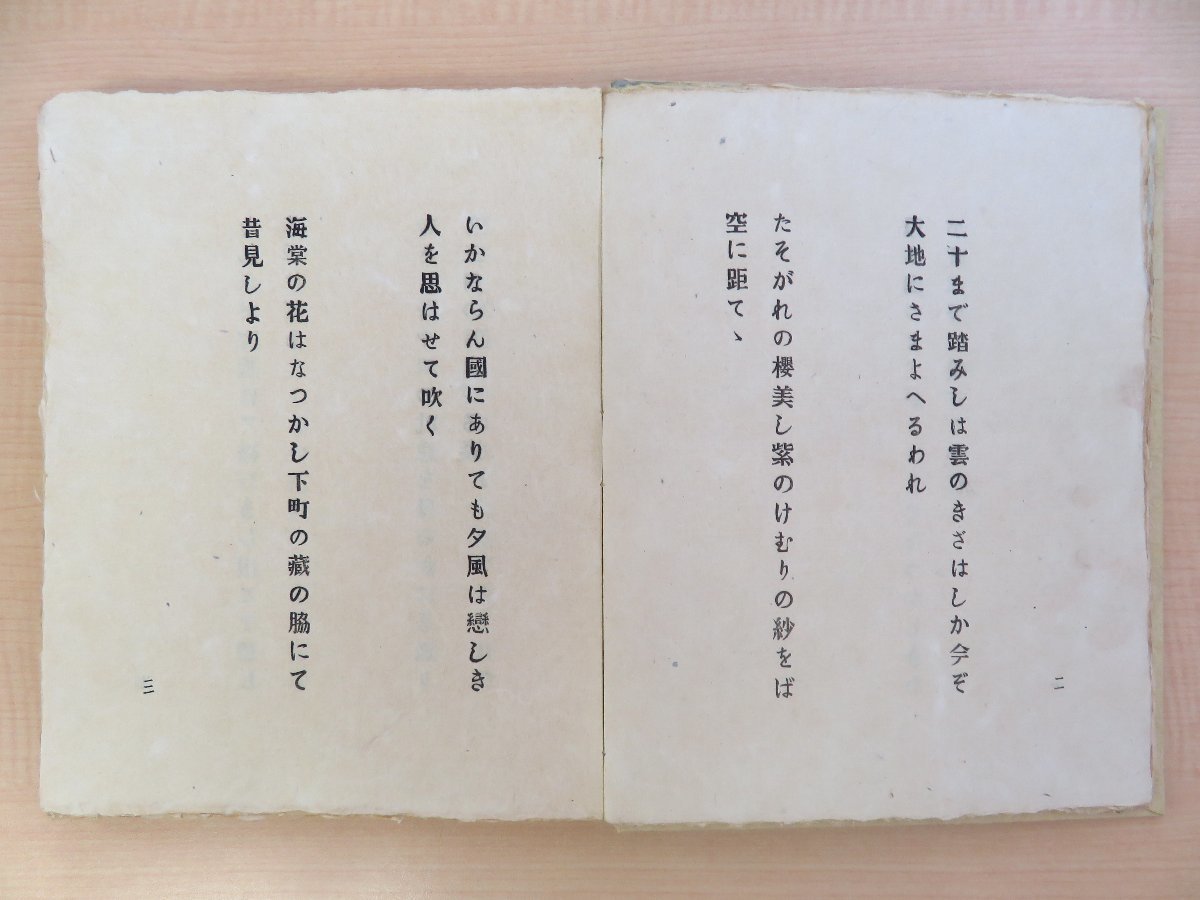 二十まで踏みしは雲のきざはしか今ぞ
大地にさまよへるわれ
たそがれの櫻美し紫のけむりの紗をば
空に距てゝ
二
いかならん國にありても夕風は戀しき
人を思はせて吹く
海棠の花はなつかし下町の藏の脇にて
昔見しより
三